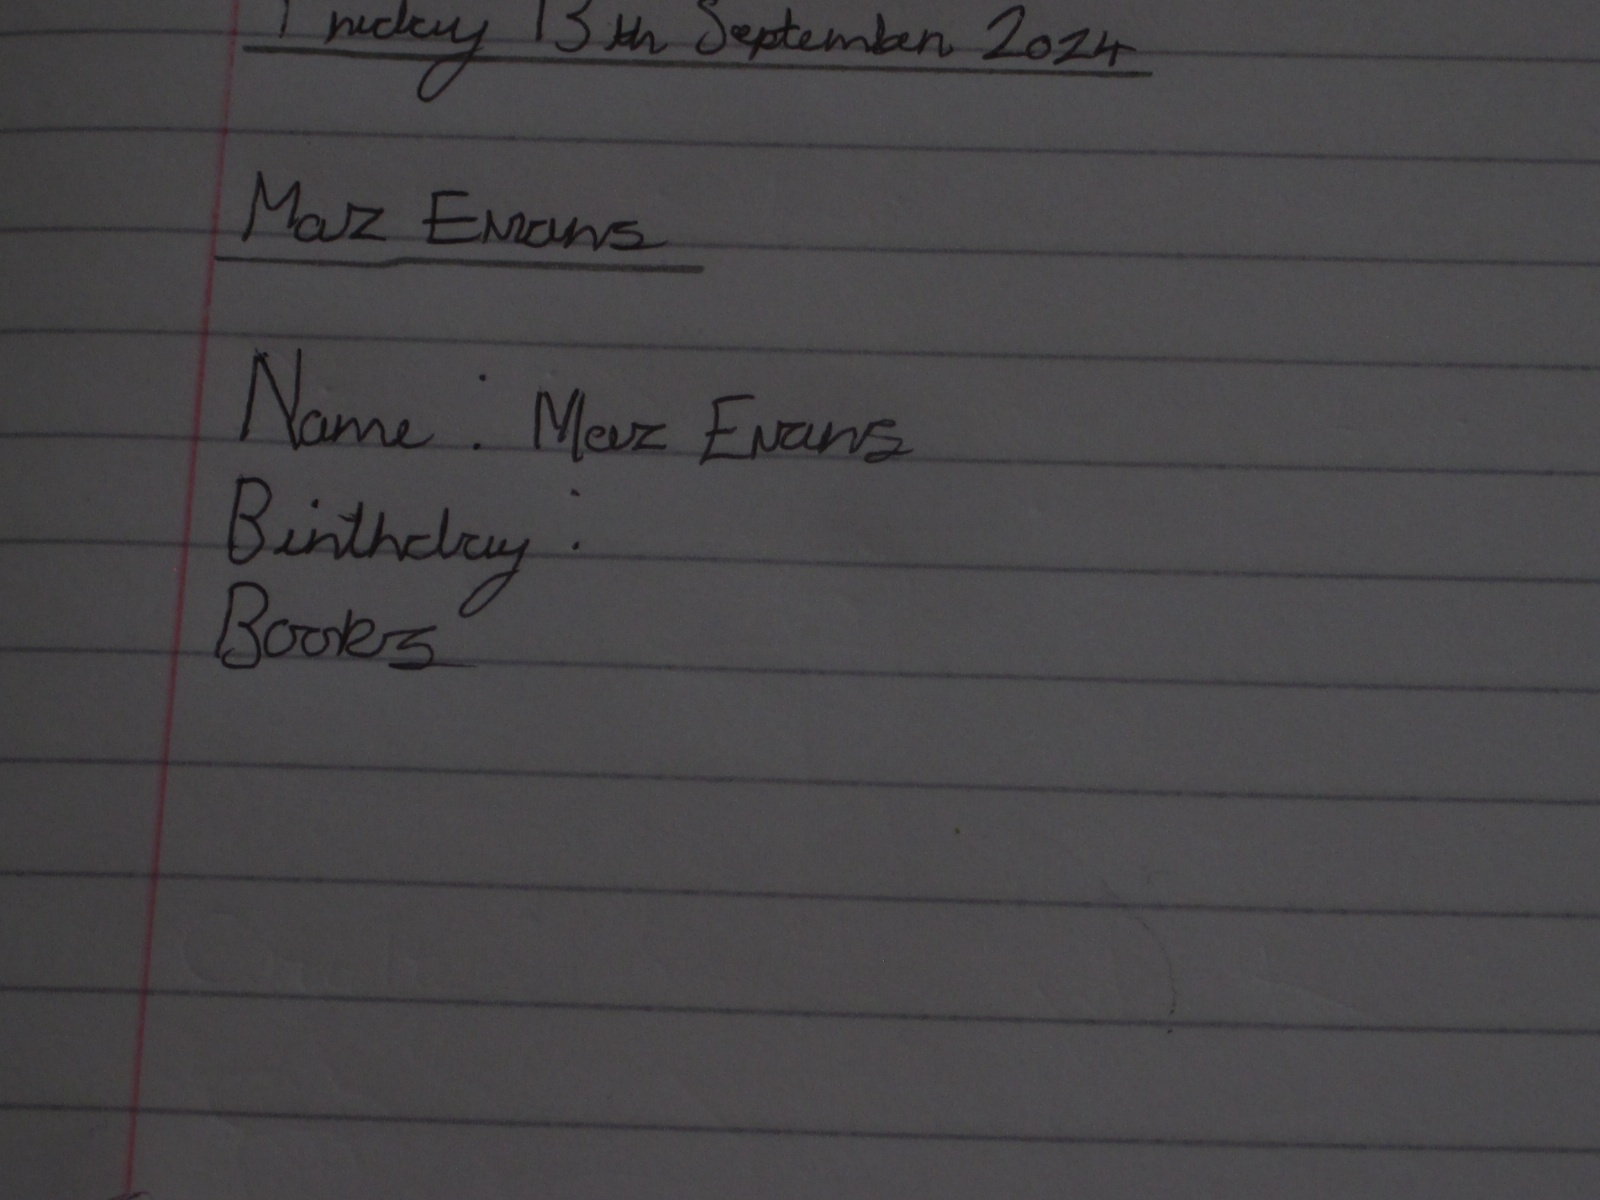 Friday 13th September 2024
Maz Evans
Name : Maz Evans
Birthday :
Books